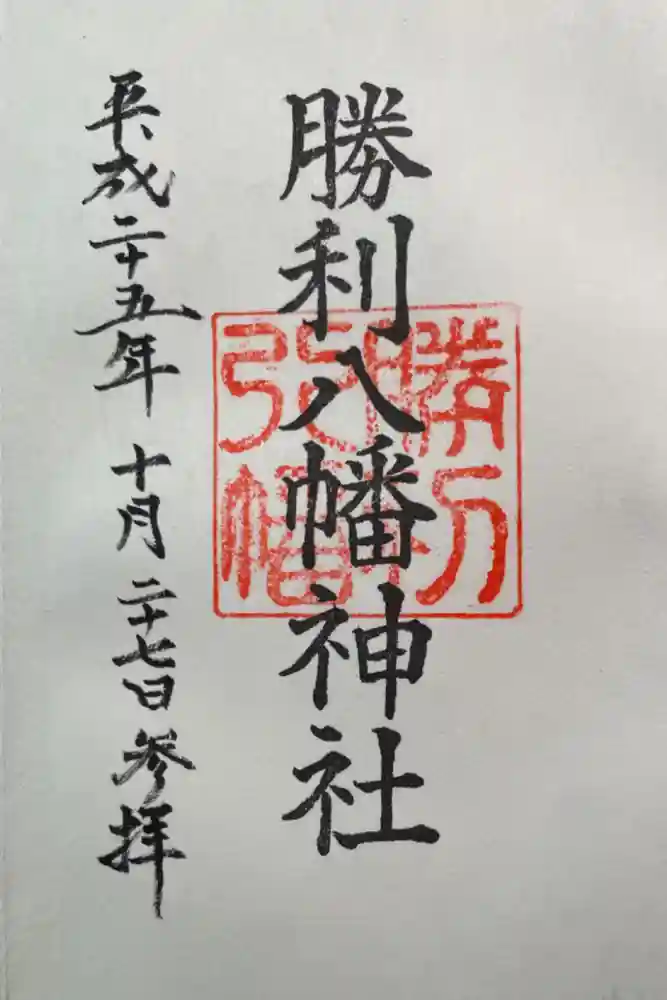 勝利八幡神社
平成二十五年十月二十七日参拝